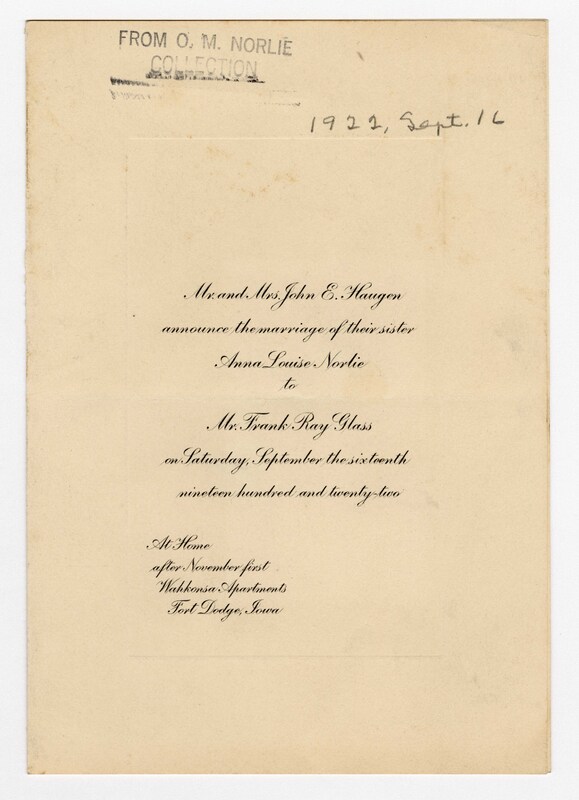 FROM O. M. NORLIE
COLLECTION
1922, Sept. 16
Mr. and Mrs. John E. Haugen
announce the marriage of their sister
Anna Louise Norlie
to
Mr. Frank Ray Glass
on Saturday, September the sixteenth
nineteen hundred and twenty-two
At Home
after November first
Wahkonsa Apartments
Fort Dodge, Iowa